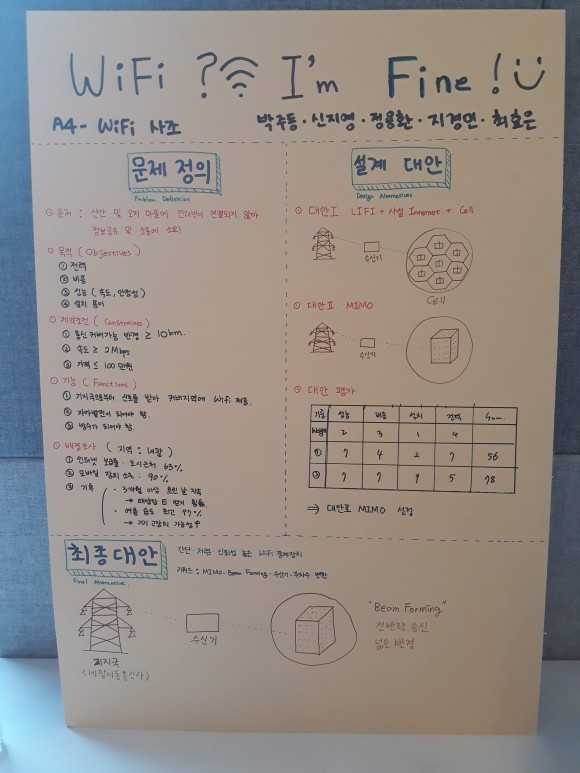 WiFi ? I'm Fine !
A4 - WiFi 사조
박주동 · 신지영 · 정용환 · 지경민 · 최효은
문제 정의
Problem Definition
① 문제 : 산간 및 오지 마을에 인터넷이 연결되지 않아
정보공유 및 소통에 소외
① 목적 ( Objectives )
① 전력
② 비용
③ 성능 ( 속도, 안정성 )
④ 설치 용이
① 제약조건 ( Constraints )
① 통신 커버가능 반경 ≥ 10km.
② 속도 ≥ 2Mbps
③ 가격 ≤ 100만원
① 기능 ( Functions )
① 기지국으로부터 신호를 받아 커버지역에 WiFi 제공.
② 자가발전이 되어야 함.
③ 방수가 되어야 함.
① 배경조사 ( 지역 : 네팔 )
① 인터넷 보급률 : 도시근처 63%
② 모바일 장치 소유 : 90%
③ 기후
· 3개월 이상 흐린 날 지속
→ 태양광 E 얻기 힘듦.
· 여름 습도 최고 97%
→ 기기 고장의 가능성↑
설계 대안
Design Alternatives
① 대안Ⅰ. LIFI + 사설 Internet + Cell
수신기
Cell
① 대안Ⅱ. MIMO
수신기
① 대안 평가
기준 성능 비용 설치 전력 Sum
Weight 2 3 1 4
① 7 4 2 7 56
② 7 7 9 5 78
⇒ 대안Ⅱ MIMO 선정
최종대안
Final Alternative.
간단 · 저렴 · 신뢰성 높은 WiFi 중계장치
키워드 : MIMO · Beam Forming · 수신기 · 주파수 변환
기지국
(네팔이동통신사)
수신기
"Beam Forming"
전반향 송신
넓은 반경